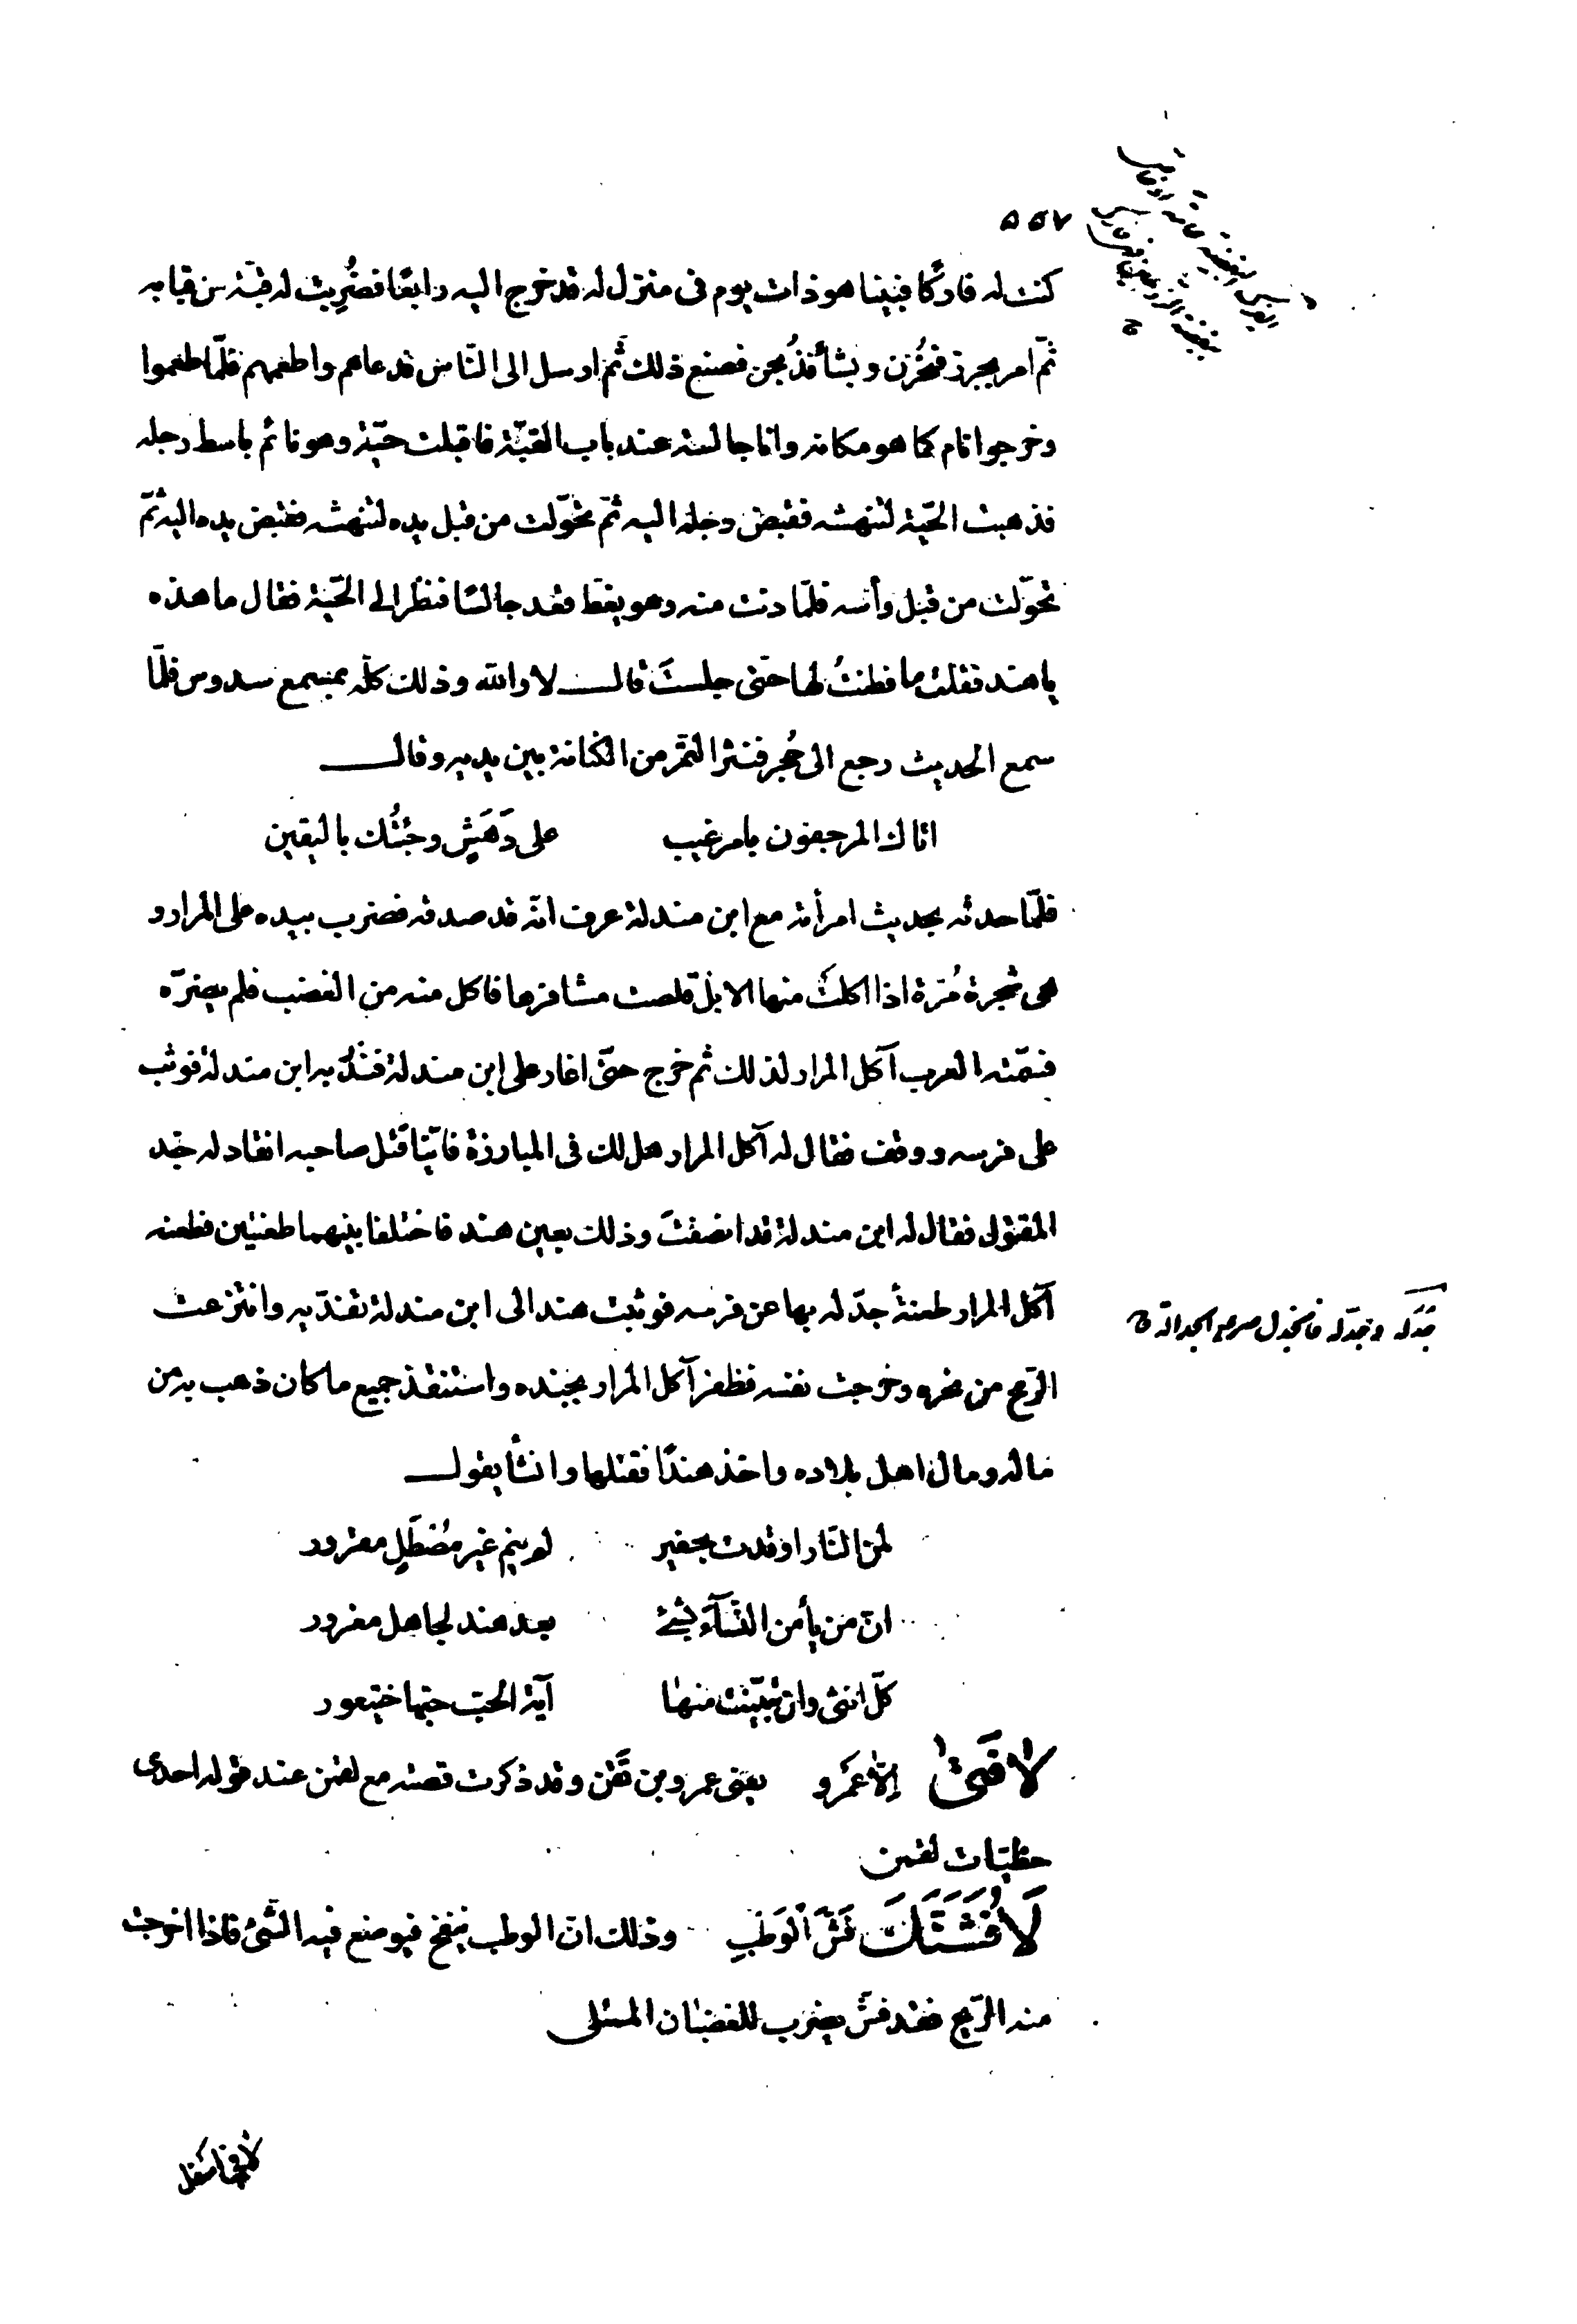 ٥٥٧
كنت له فاركًا فبينا هو ذات يوم فى منزل له قد خرج اليه رابعًا فضُرِبت له قبّة من قبابه
ثمّ امر بجزر فنُحُرن و بشأ فذُبحن فصنع ذلك ثمّ ارسل الى النّاس فدعاهم واطعمهم فلمّا طعموا
وخرجوا نام كما هو مكانه وانا جالسة عند باب القبّة فاقبلت حيّة وهو نائم باسط رجله
فذهبت الحيّة لتنهشه فقبض رجله اليه ثمّ تحوّلت من قبل يده لتنهشه فقبض يده اليه ثمّ
تحوّلت من قبل رأسه فلمّا دنت منه وهو يغطّ قعد جالسًا فنظر الى الحيّة فقال ما هذه
يا هند فقلت ما فطنتُ لها حتّى جلستَ قال لا والله وذلك كلّه بمسمع سدوس فلمّا
سمع الحديث رجع الى حُجر فنثر التمر من الكنانة بين يديه وقال
اتاك المرجفون بامر غيب على دَهَشٍ وجئتُك باليقين
فلمّا حدثه بحديث امرأته مع ابن مندلة عرف انّه قد صدقه فضرب بيده على المرار و
هى شجرة مُرّة اذا اكلتْ منها الابل قلصت مشافرها فاكل منه من الغضب فلم يضرّه
فسمّته العرب آكل المرار لذلك ثم خرج حتّى اغار على ابن مندلة فنذُر به ابن مندلة فوثب
على فرسه ووقف فقال له آكل المرار هل لك فى المبارزة فايّنا قَتل صاحبه انقاد له جند
المقتول فقال له ابن مندلة قد انصفتَ وذلك بعين هند فاختلفا بينهما طعنتين فطعنه
آكل المرار طعنةً جدّله بها عن فرسه فوثبت هند الى ابن مندلة تفدّيه وانتزعت
جَدَله وجَدّله فانجدل
الرّمح من نحره وخرجت نفسه فظفر آكل المرار بجنده واستنقذ جميع ما كان ذهب به من
ماله ومال اهل بلاده واخذ هندًا فقتلها وانشأ يقول
لمن النّار اوقدت بحفير لم ينم غير مُصْطَلٍ مقرور
انّ من يأمن النّسآء بشئ بعد هند لجاهل مغرور
كلّ انثى وان تبيّنت منها آية الحبّ حبّها خيتعور
لا فَتىٰ إلّا عَمْرو يعنى عمرو بن تقن وقد ذكرت قصته مع لقمن عند قوله احدى
حظيّات لقمن
لَأَفُشَّنَّكَ فَشَّ الوَطْبِ وذلك انّ الوطب ينفخ فيوضع فيه الشّئ فاذا اخرجت
منه الرّيح فقد فشّ يضرب للغضبان الممتلى